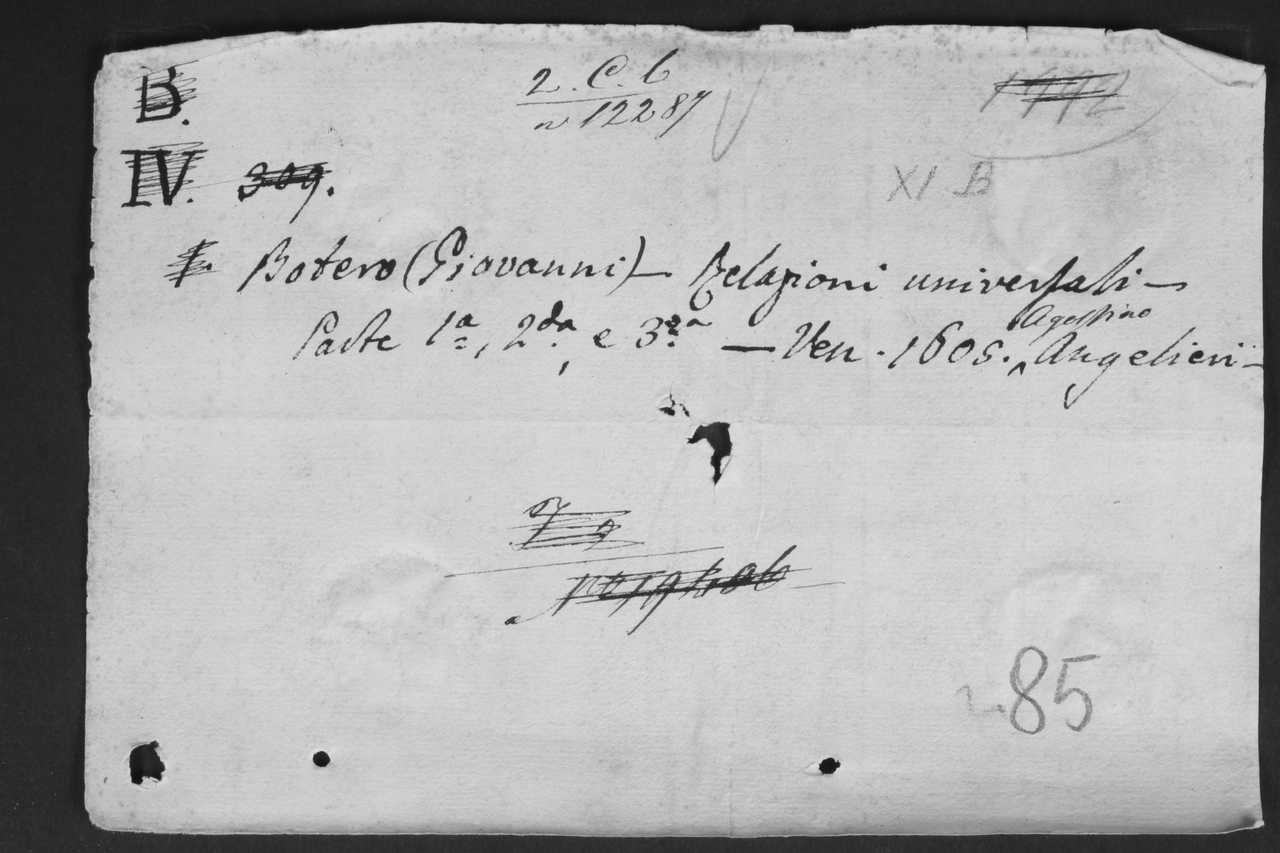 B.
2.C.6
n 12287
IV. 309.
XI B
Botero (Giovanni) — Relazioni universali —
Parte 1ª, 2da, e 3ª — Ven. 1605. Agostino Angelieri —
n. 85